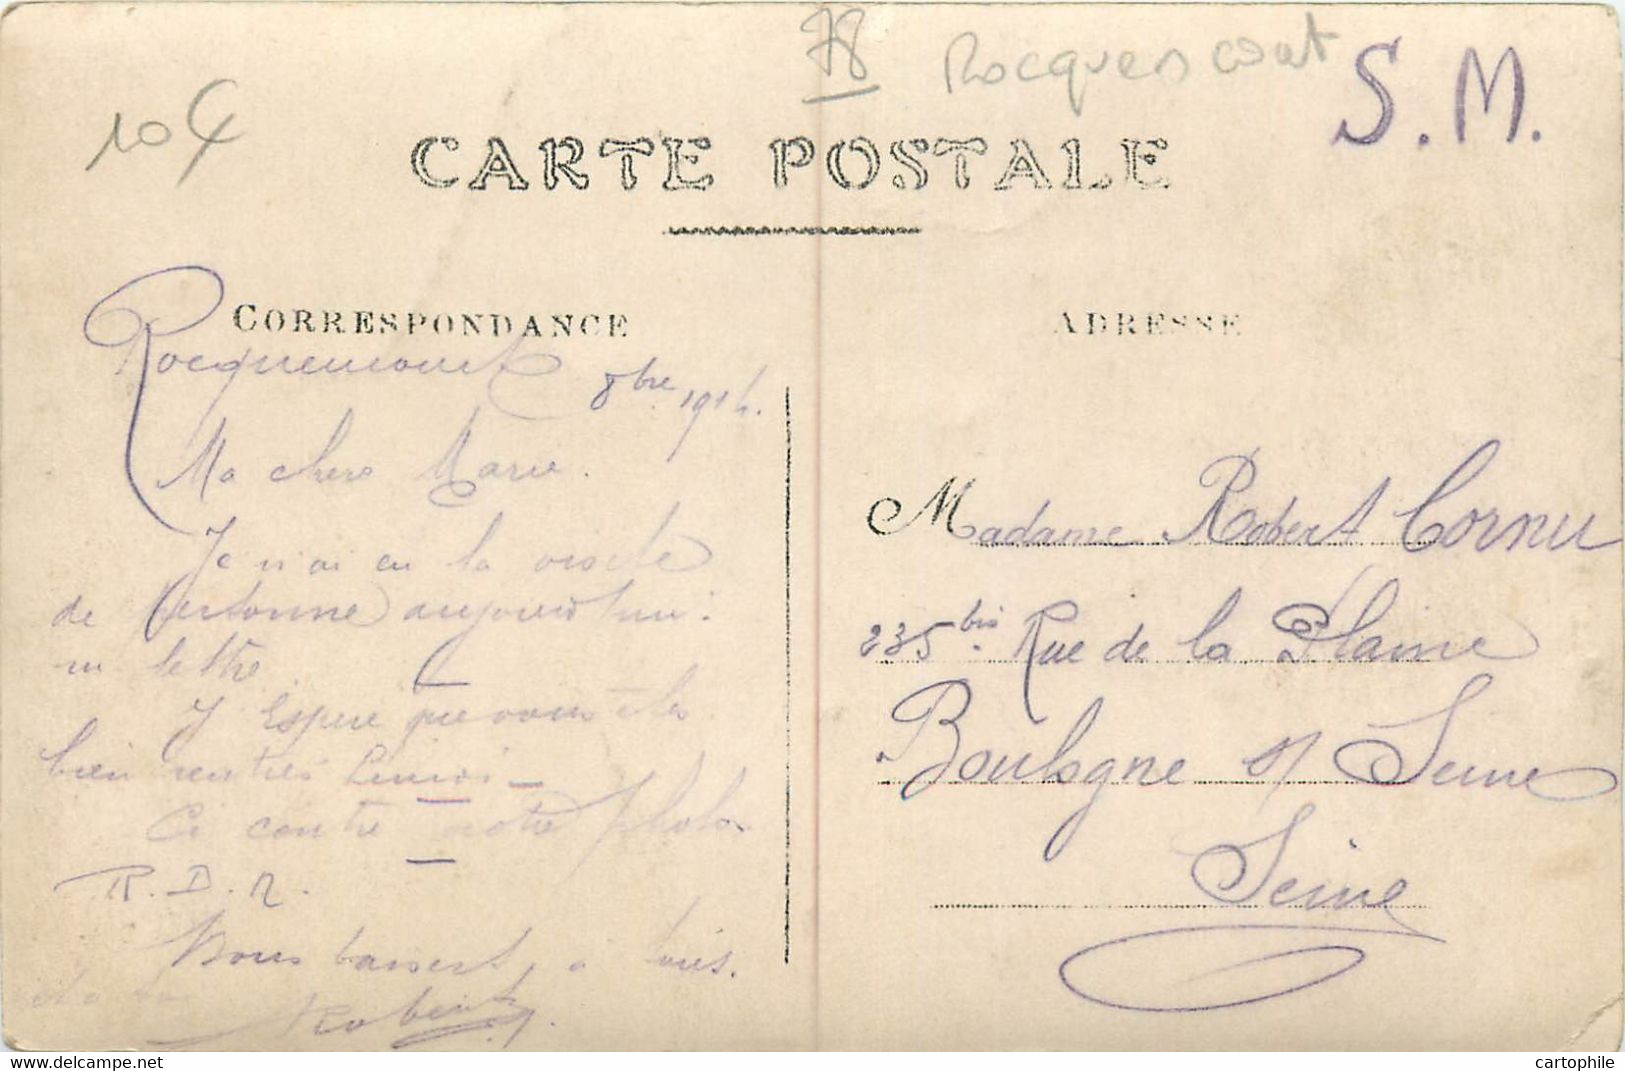 78 Rocquencourt
S.M.
10€
CARTE POSTALE
CORRESPONDANCE
ADRESSE
Rocquencourt 8bre 1914.
Ma chere Marie.
Je n'ai eu la visite
de personne aujourd'hui
ni lettre
J'Espere que vous etes
bien rentrés
Ci contre notre photo
R.D.N.
Bons baisers a tous.
Robert
Madame Robert Cornu
235 bis. Rue de la Plaine
Boulogne s/ Seine
Seine
cartophile